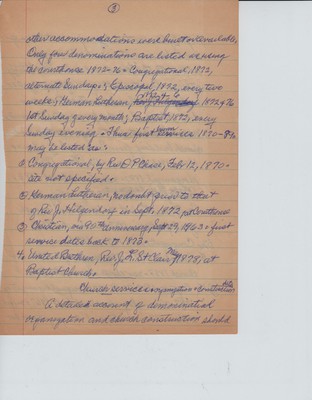 ③
other accommodations were built or available.
Only four denominations are listed as using
the courthouse 1872-76. Congregational, 1872,
alternate Sundays; Episcopal 1872, every two
weeks; German Lutheran, 1872 & 76
1st Sunday of every month; Baptist, 1872, every
Sunday evening. Thus first services 1870-80
may be listed as:
1) Congregational, by Rev. Feb. 12, 1870.
site not specified.
2) German Lutheran, no doubt prior to that
of Rev. J. Hilgendorf in Sept. 1872, at Courthouse
3) Christian, in 90th anniversary, Sept 29, 1963. first
service dates back to 1873.
4) United Brethren, Rev. J. K. St Clair, May 1878, at
Baptist Church.
Church services & organization & construction
A detailed account of denominational
organization and church construction should